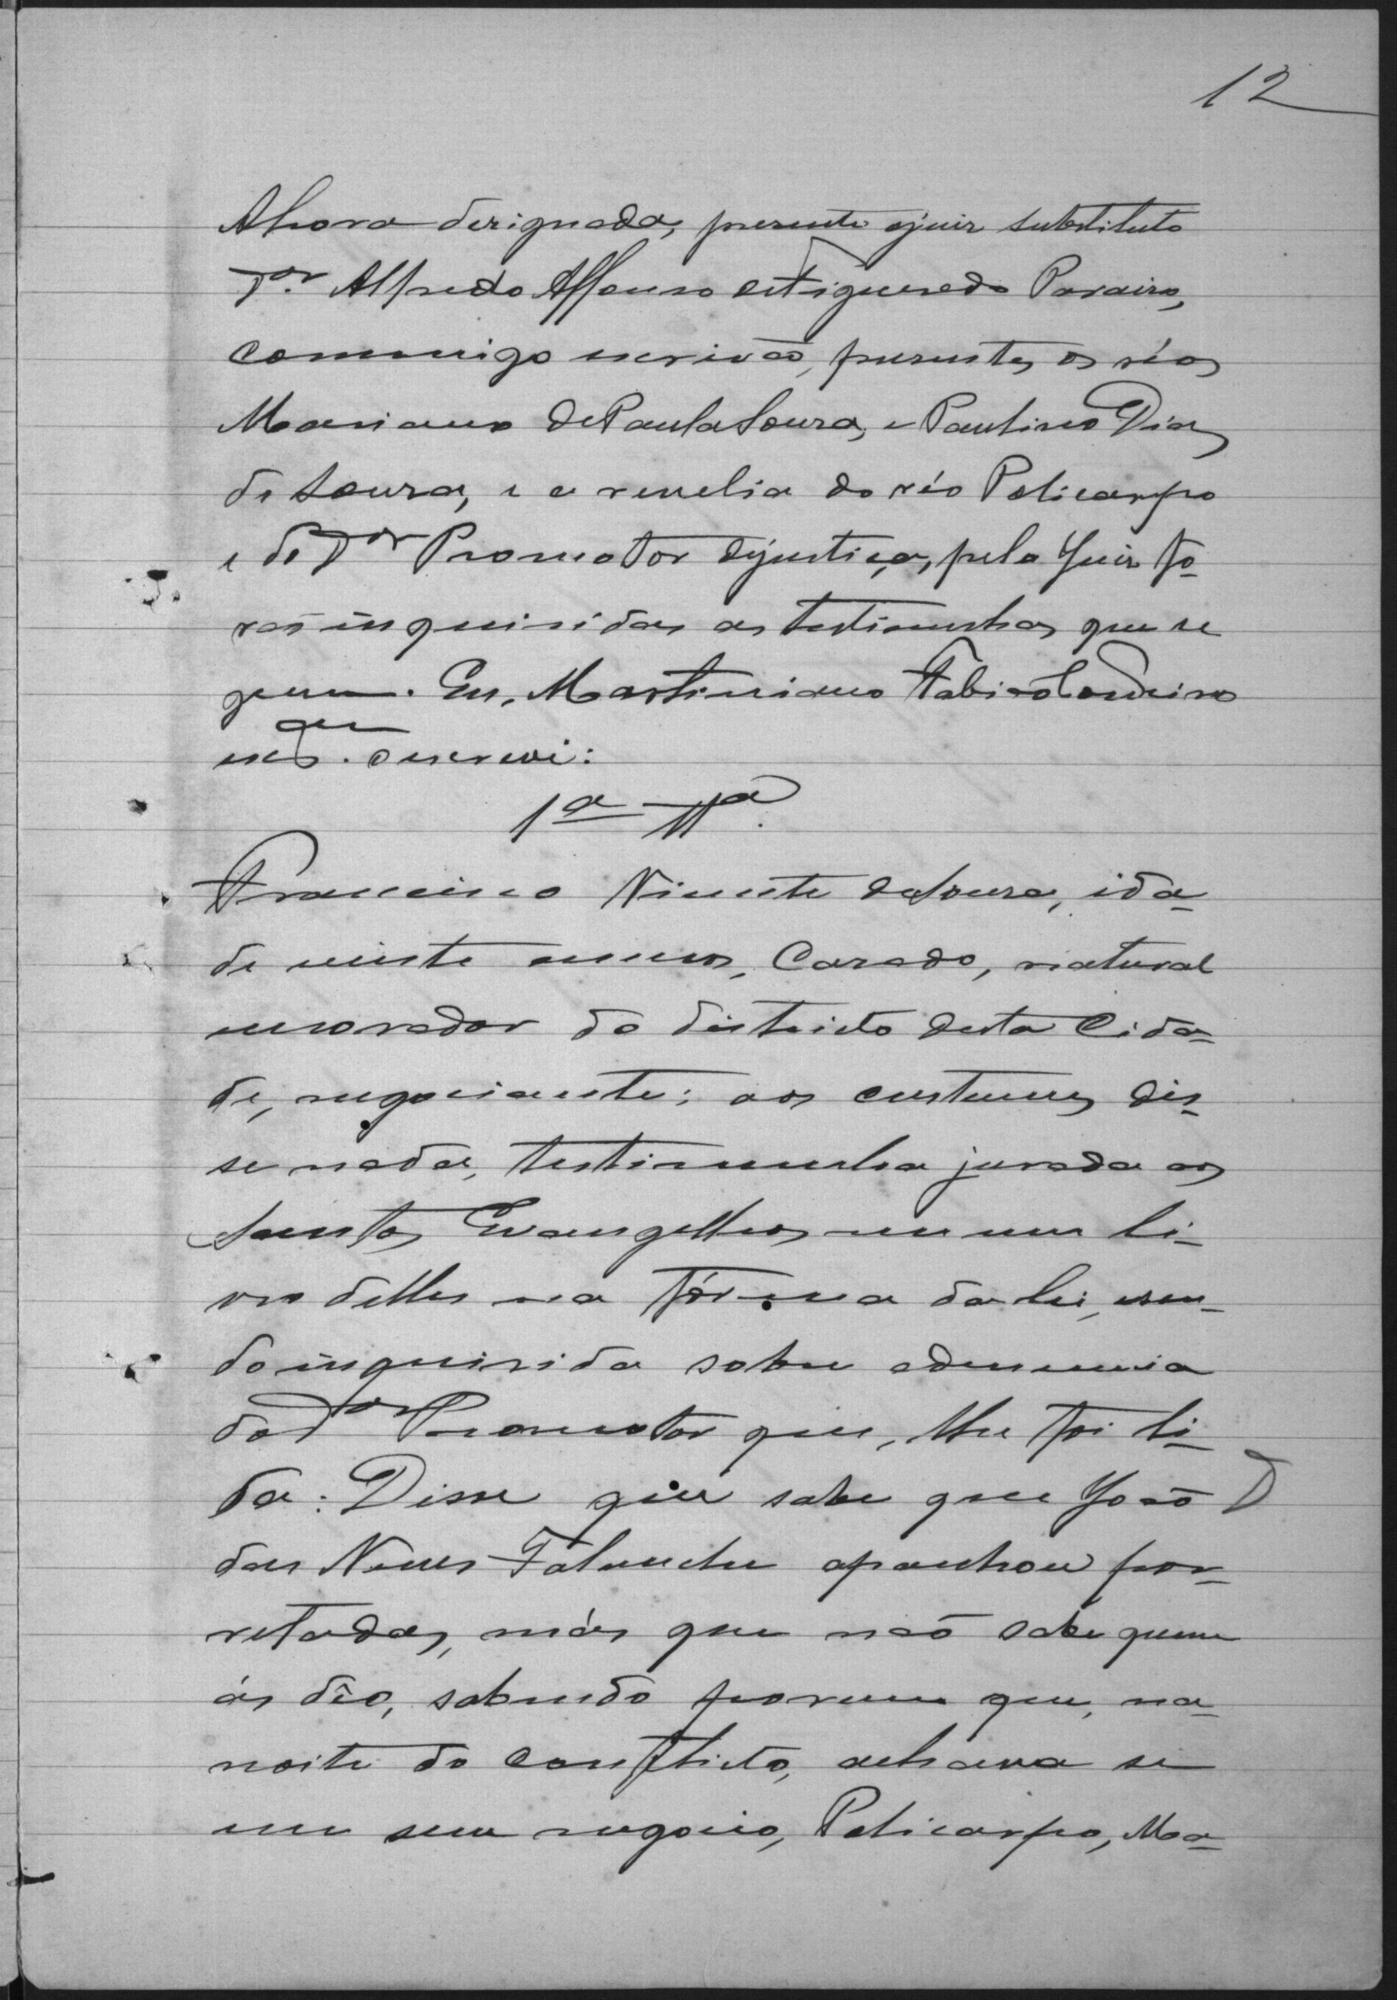 12
Ahora designada, presente ojuiz substituto
Dor. Alfredo Affonso de Figueredo Paraizo,
commigo escrivaõ, presentes os réos
Mariano de Paula Souza, e Paulino Dias
de Souza, e a revelia do réo Policarpo
e do Dor Promotor dejustiça, pelo Juiz fo-
raõ inquiridas as testimunhas que se
guem. Eu, Martiniano Fabio
que escrevi:
1a Ta.
Francisco Vicente deSouza, ida-
de vinte annos, Casado, natural
morador do districto desta Cida-
de, negociante; aos custumes dis-
se nada, testimunha jurada aos
Santos Evangelhos em um li-
vro delles na fórma da lei, e sen-
do inquirida sobre adenuncia
do Dor Promotor que, lhe foi li-
da: Disse que sabe que Joaõ D
das Neves Falunche apanhou por-
retadas, más que naõ sabe quem
ás dêo, sabendo porem que, na-
noite do conflicto, achava se
em seu negocio, Policarpo, Ma-